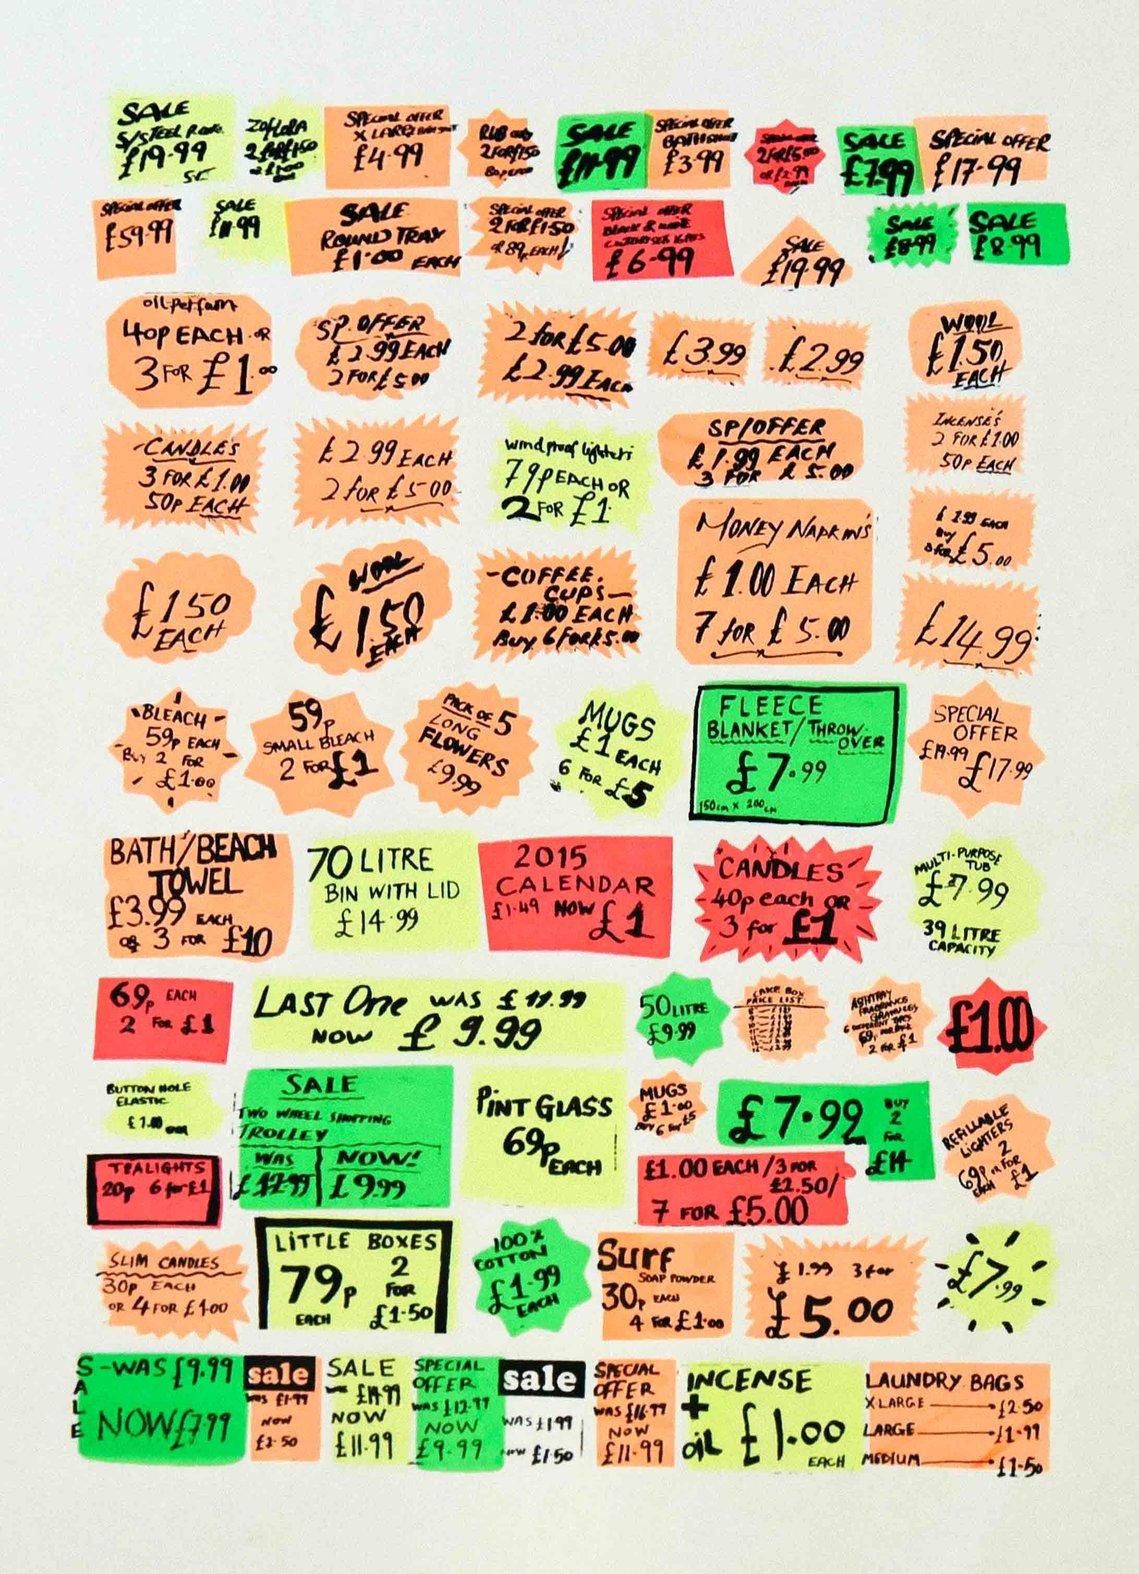 SALE
S/STEEL
£19.99
ZOFLORA
2 FOR £1.50
SPECIAL OFFER
X LARGE
£4.99
2 FOR £1.50
SALE
£11.99
SPECIAL OFFER
£3.99
2 FOR £5.00
SALE
£7.99
SPECIAL OFFER
£17.99
SPECIAL OFFER
£59.99
SALE
£11.99
SALE
ROUND TRAY
£1.00 EACH
SPECIAL OFFER
2 FOR £1.50
OR 89p EACH
SPECIAL OFFER
£6.99
SALE
£19.99
SALE
£8.99
SALE
£8.99
oil perfum
40p EACH OR
3 FOR £1.00
SP. OFFER
£2.99 EACH
2 FOR £5.00
2 for £5.00
£2.99 EACH
£3.99
£2.99
WOOL
£1.50
EACH
-CANDLE'S
3 FOR £1.00
50p EACH
£2.99 EACH
2 for £5.00
windproof lighters
79p EACH OR
2 FOR £1
SP/OFFER
£1.99 EACH
3 FOR £5.00
INCENSE'S
2 FOR £1.00
50p EACH
MONEY NAPKIN'S
£1.00 EACH
7 for £5.00
£1.99 EACH
Buy
3 FOR £5.00
£150
EACH
WOOL
£150
EACH
-COFFEE.
CUPS-
£1.00 EACH
Buy 6 FOR £5.00
£14.99
-BLEACH-
59p EACH
Buy 2 FOR
£1.00
59p
SMALL BLEACH
2 FOR £1
PACK OF 5
LONG
FLOWERS
£9.99
MUGS
£1 EACH
6 FOR £5
FLEECE
BLANKET/THROW
OVER
£7.99
150cm x 200cm
SPECIAL
OFFER
£19.99 £17.99
BATH/BEACH
TOWEL
£3.99 EACH
OR 3 FOR £10
70 LITRE
BIN WITH LID
£14.99
2015
CALENDAR
£1.49 NOW £1
CANDLES
40p each OR
3 for £1
MULTI-PURPOSE
TUB
£7.99
39 LITRE
CAPACITY
69p EACH
2 FOR £1
LAST One WAS £11.99
NOW £9.99
50 LITRE
£9.99
CAKE BOX
PRICE LIST
ASHTRAY
FRAGRANCE
GRANULES
6 DIFFERENT TYPES
69p PER BOX
2 FOR £1
£1.00
BUTTON HOLE
ELASTIC
£1.00
SALE
TWO WHEEL SHOPPING
TROLLEY
WAS NOW!
£12.99 £9.99
PINT GLASS
69p
EACH
MUGS
£1.00
BUY 6 for £5
£7.99 BUY
2
FOR
£14
REFILLABLE
LIGHTERS
69p EACH
2 FOR £1
TEALIGHTS
20p 6 for £1
£1.00 EACH/3 FOR
£2.50/
7 FOR £5.00
SLIM CANDLES
30p EACH
OR 4 FOR £1.00
LITTLE BOXES
79p EACH
2 FOR £1.50
100%
COTTON
£1.99
EACH
Surf
SOAP POWDER
30p EACH
4 FOR £1.00
£1.99 3 for
£5.00
£7.99
SALE
-WAS £9.99
NOW £7.99
sale
WAS £1.99
NOW
£1.50
SALE
£14.99
NOW
£11.99
SPECIAL
OFFER
WAS £12.99
NOW
£9.99
sale
WAS £1.99
NOW £1.50
SPECIAL
OFFER
WAS £16.99
NOW
£11.99
INCENSE
+
OIL £1.00
EACH
LAUNDRY BAGS
X LARGE £2.50
LARGE £1.99
MEDIUM £1.50